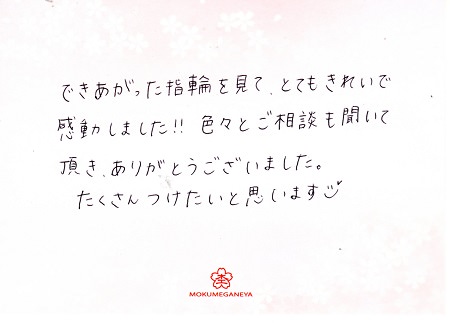 できあがった指輪を見て、とてもきれいで
感動しました!! 色々とご相談も聞いて
頂き、ありがとうございました。
たくさんつけたいと思います
MOKUMEGANEYA